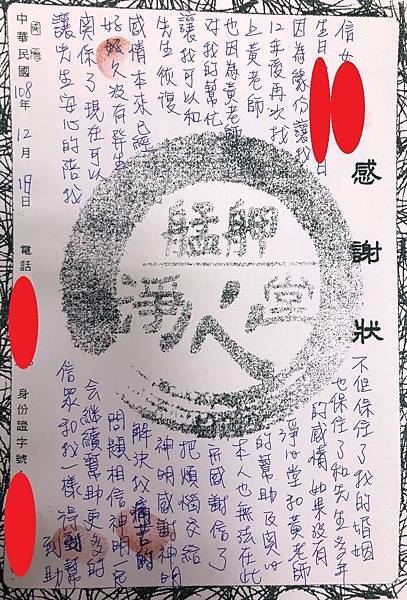 感謝狀
信女
生日 日
因為緣份讓我
12年後再次找
上黃老師
也因為黃老師
對我的幫忙
讓我可以和
先生恢復
感情本來已經
好久沒有發生
關係了現在可以
讓先生安心的陪我
不但保住了我的婚姻
也保住了和先生多年
的感情如果沒有
淨心堂和黃老師
的幫助及
本人也無法在此
感謝信了
把煩惱交給
神明感謝神明
解決我痛苦的
問題相信神明一定
會繼續幫助更多的
信眾和我一樣得到幫助
艋舺
淨心堂
國曆
中華民國108年12月19日 電話 身份證字號